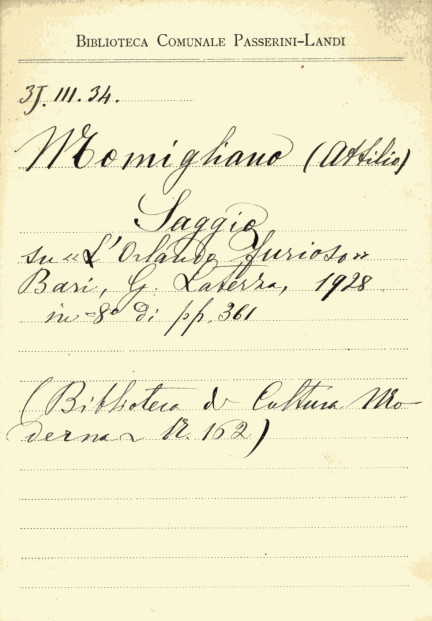 BIBLIOTECA COMUNALE PASSERINI-LANDI
3J. III. 34.
Momigliano (Attilio)
Saggio
su «L'Orlando furioso»
Bari, G. Laterza, 1928
in-8º di pp. 361
(Biblioteca di Cultura Mo-
derna N. 162)